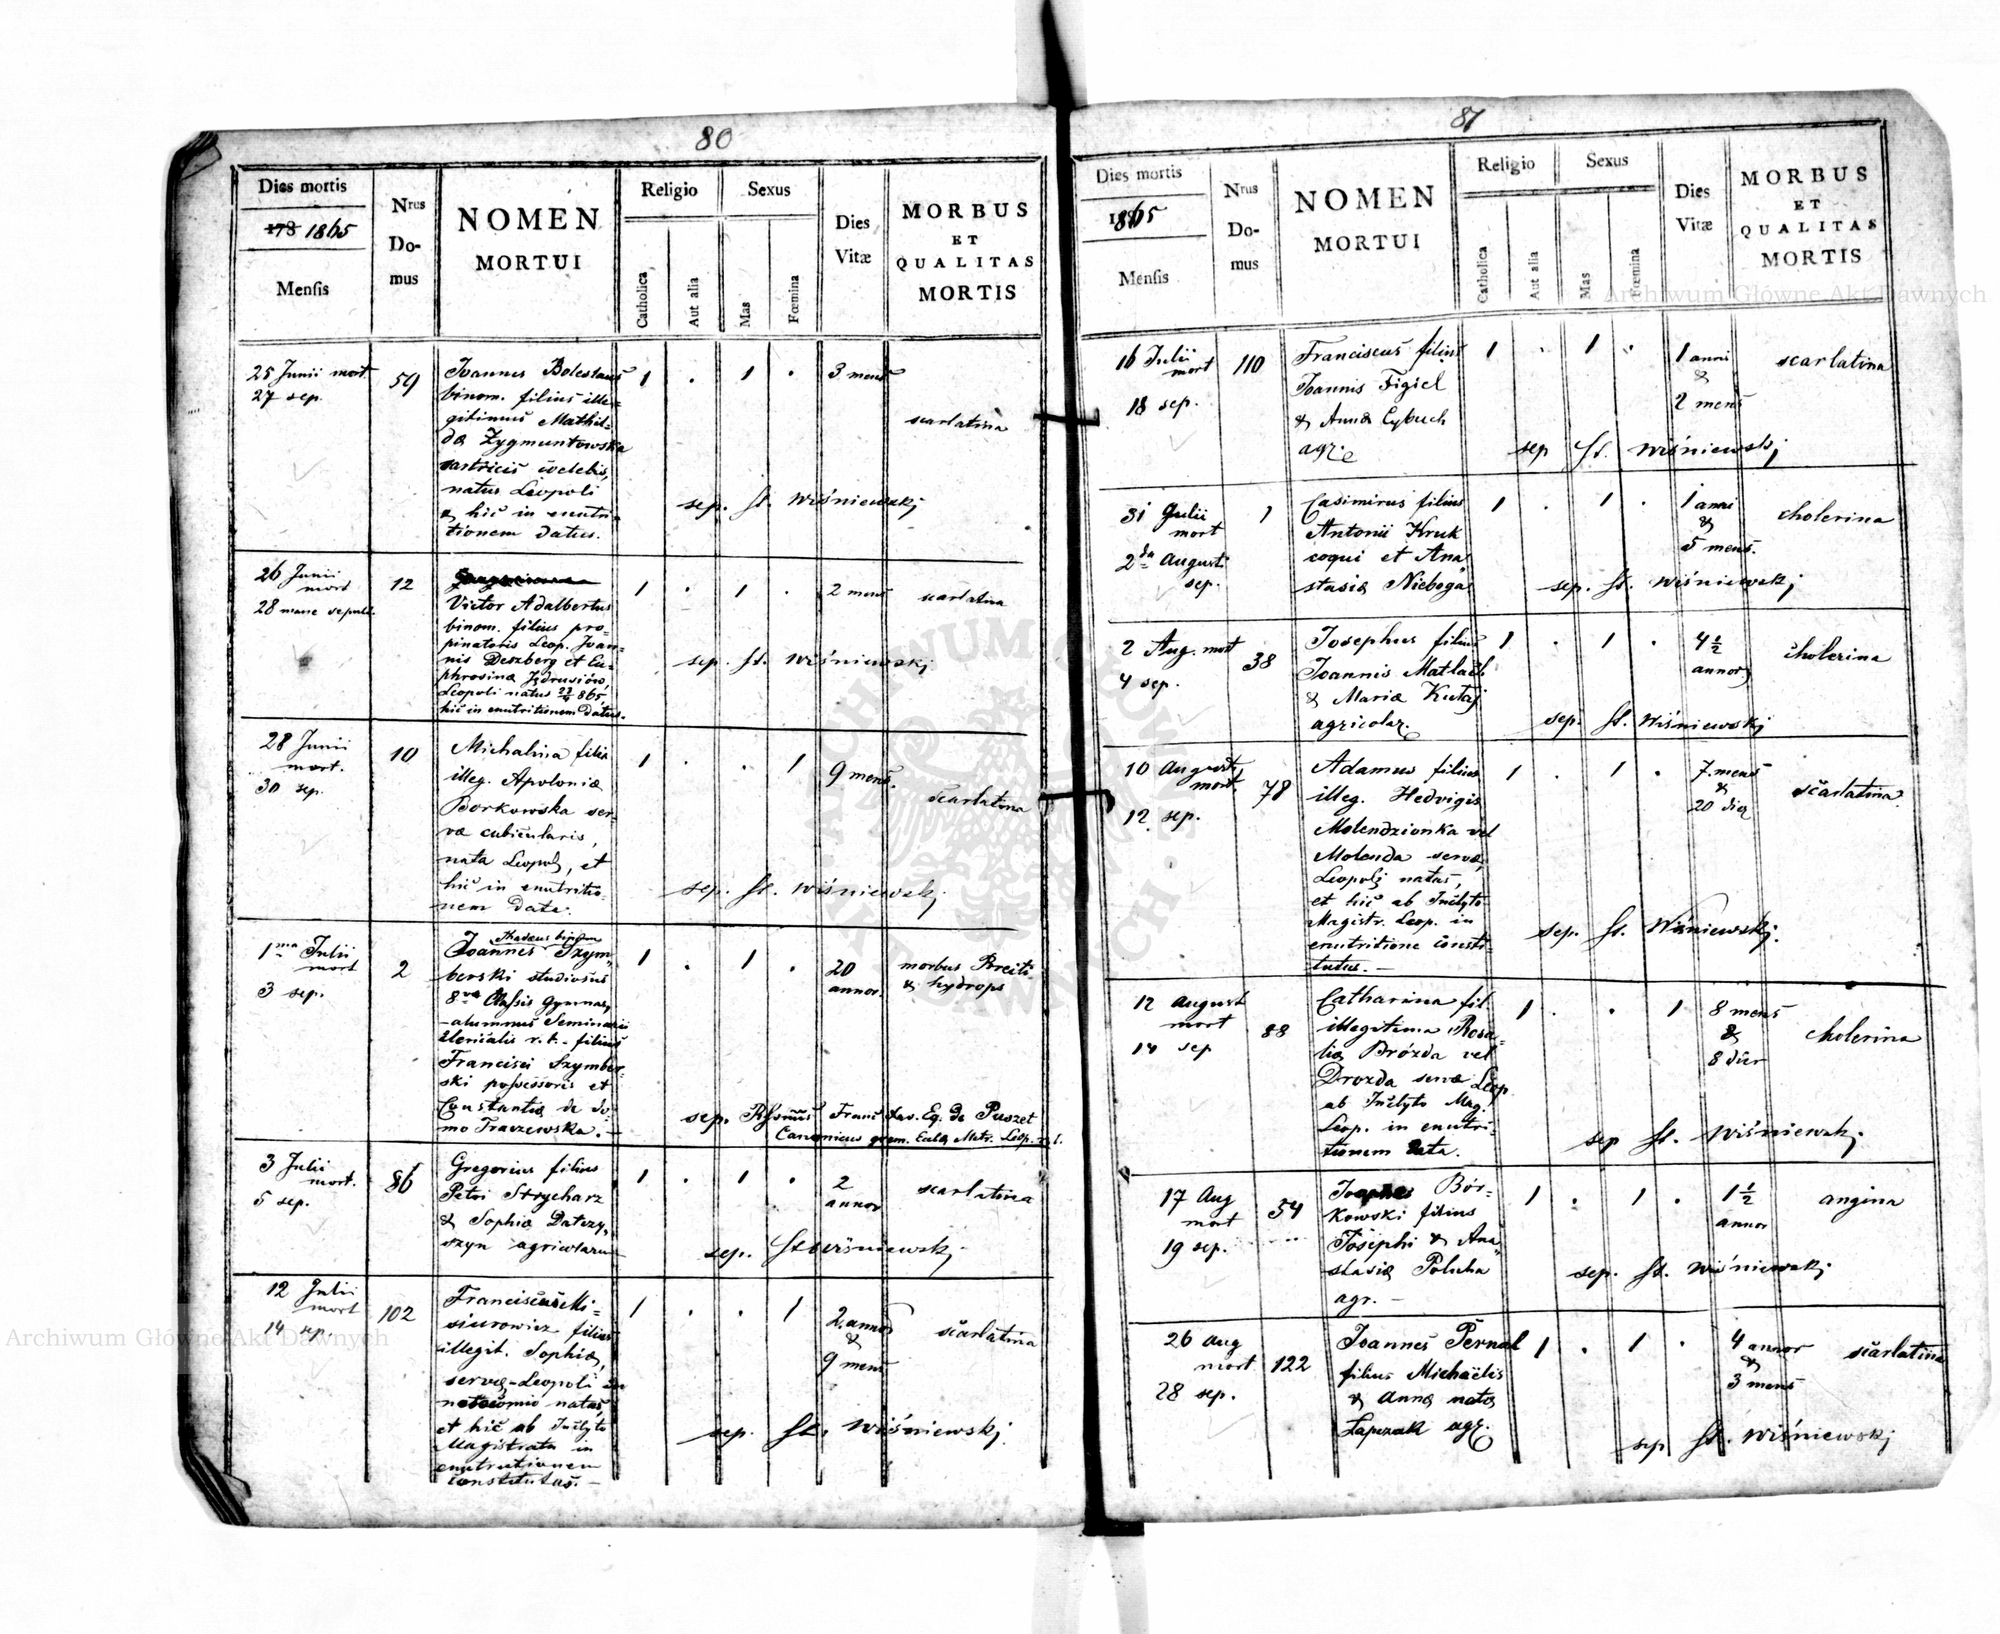 80
Dies mortis
178 1865
Mensis
Nrus
Do-
mus
NOMEN
MORTUI
Religio
Catholica
Aut alia
Sexus
Mas
Fœmina
Dies
Vitæ
MORBUS
ET
QUALITAS
MORTIS
25 Junii mort
27 sep.
59
Joannes Boleslaus
binom. filius ille-
gitimus Mathil-
da Zygmuntowska
sartricis cœlebis,
natus Leopoli
& hic in enutri-
tionem datus.
1 . 1 .
3 mens
scarlatina
sep. St. Wiśniewskj
26 Junii
mort
28 mane sepult.
12
Victor Adalbertus
binom. filius pro-
pinatoris Leop. Joan-
nis Deszberg et Eu-
phrosina Jędrusiów
Leopoli natus 865
hic in enutritionem datus.
1 . 1 .
2 mens
scarlatina
sep. St. Wiśniewskj
28 Junii
mort.
30 sep.
10
Michalina filia
illeg. Apoloniæ
Borkowska ser-
væ cubicularis,
nata Leopoli, et
hic in enutritio-
nem data.
1 . . 1
9 mens.
scarlatina
sep. St. Wiśniewskj
1ma Julii
mort
3 sep.
2
Thadeus binom
Joannes Szym-
berski studiosus
8væ Classis Gymnas.
alumnus Seminarii
Clericalis r. l. filius
Francisci Szymber-
ski possessoris et
Constantia de do-
mo Traczewska.
1 . 1 .
20
annor.
morbus
& hydrops
sep. Franc Xav. Eq. de Puszet
Canonicus grem. Eccla Metr. Leop. r. l.
3 Julii
mort.
5 sep.
86
Gregorius filius
Petri Strycharz
& Sophiæ Datczy-
szyn agricolarum
1 . 1 .
2
annor
scarlatina
sep. St Wiśniewskj
12 Julii
mort
14 sep.
102
Franciscus Mi-
siurowicz filius
illegit. Sophiæ,
servæ Leopoli in
natus
et hic ab Inclyto
Magistratu in
enutritionem
constitutus.
1 . . 1
2 annor
&
9 mens
scarlatina
sep. St. Wiśniewskj
81
Dies mortis
1865
Mensis
Nrus
Do-
mus
NOMEN
MORTUI
Religio
Catholica
Aut alia
Sexus
Mas
Fœmina
Dies
Vitæ
MORBUS
ET
QUALITAS
MORTIS
16 Julii
mort
18 sep.
110
Franciscus filius
Joannis Figiel
& Anna Cybuch
agr.
1 . 1 .
1 anni
&
2 mens
scarlatina
sep St. Wiśniewskj
31 Julii
mort
2da Augusti
sep.
1
Casimirus filius
Antonii Kruk
coqui et Ana-
stasiæ Nieboga
1 . 1 .
1 anni
&
5 mens.
cholerina
sep. St. Wiśniewskj
2 Aug. mort
4 sep.
38
Josephus filius
Joannis Matlach
& Mariæ Kutaj
agricolar.
1 . 1 .
4 1/2
annor
cholerina
sep. St. Wiśniewskj
10 Augusti
mort
12 sep.
78
Adamus filius
illeg. Hedvigis
Molendzionka vel
Molenda servæ
Leopoli natus,
et hic ab Inclyto
Magistr. Leop. in
enutritione consti-
tutus.
1 . 1 .
7 mens
&
20 die
scarlatina
sep. St. Wiśniewskj.
12 August
mort
14 sep
88
Catharina fil.
illegitima Rosa-
liæ Brózda vel
Drozda servæ Leop.
ab Inclyto Mag.
Leop. in enutri-
tionem data.
1 . . 1
8 mens
&
8 dier
cholerina
sep St. Wiśniewskj.
17 Aug
mort
19 sep.
54
Bór-
kowski filius
Josephi & Ana-
stasiæ Polucha
agr.
1 . 1 .
1 1/2
annor
angina
sep. St. Wiśniewskj.
26 Aug
mort
28 sep.
122
Joannes Pernal
filius Michaëlis
& Annæ nata
Łapczak agr.
1 . 1 .
4 annor
&
3 mens
scarlatina
sep St. Wiśniewskj
Archiwum Główne Akt Dawnych
Archiwum Główne Akt Dawnych
ARCHIWUM GŁÓWNE AKT DAWNYCH